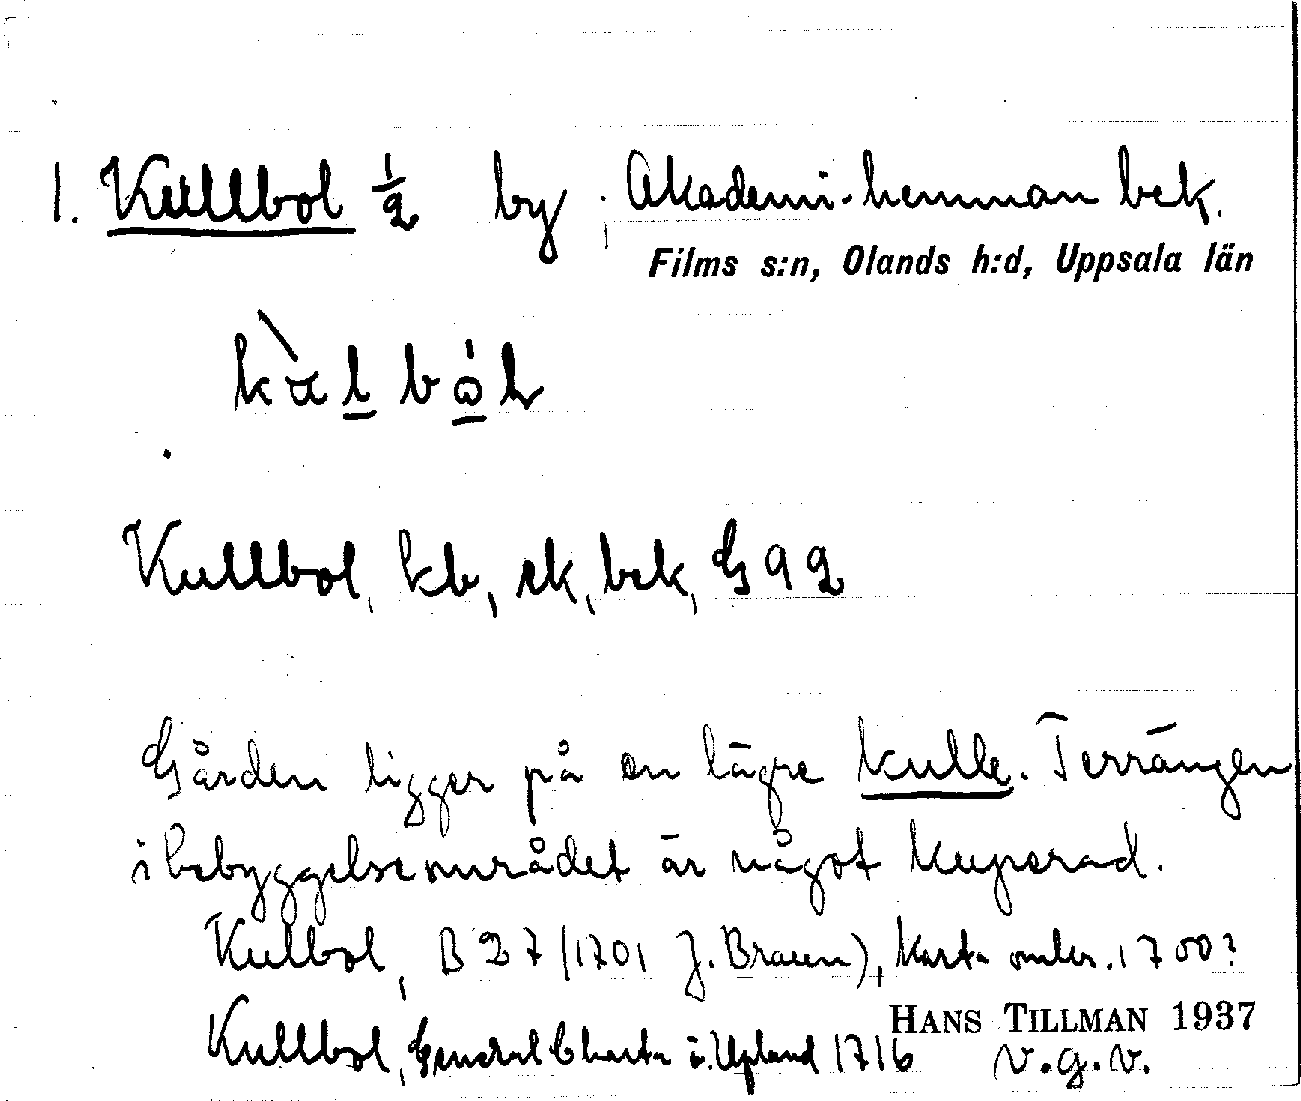 1. Kullbol ½ by. Akademi-hemman bek.
Films s:n, Olands h:d, Uppsala län
Kullbol, kb, rk, bek, G 92
Gården ligger på en lägre kulle. Terrängen
i bebyggelseområdet är något kuperad.
Kulbol, B 27 (1701 J. Braun), Karta omkr. 1700?
HANS TILLMAN 1937
Kullbol, General Charta ö. Upland 1716 v.g.v.